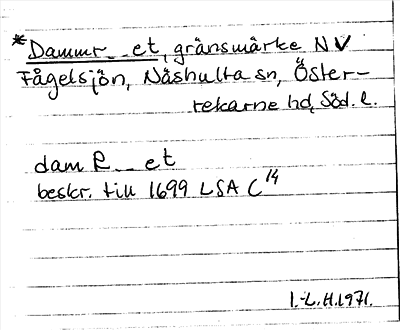 *Dammr_ _et, gränsmärke NV
Fågelsjön, Näshulta sn, Öster-
rekarne hd, Söd. l.
dam R_ _et
beskr. till 1699 LSA C14
I.-L.H.1971.